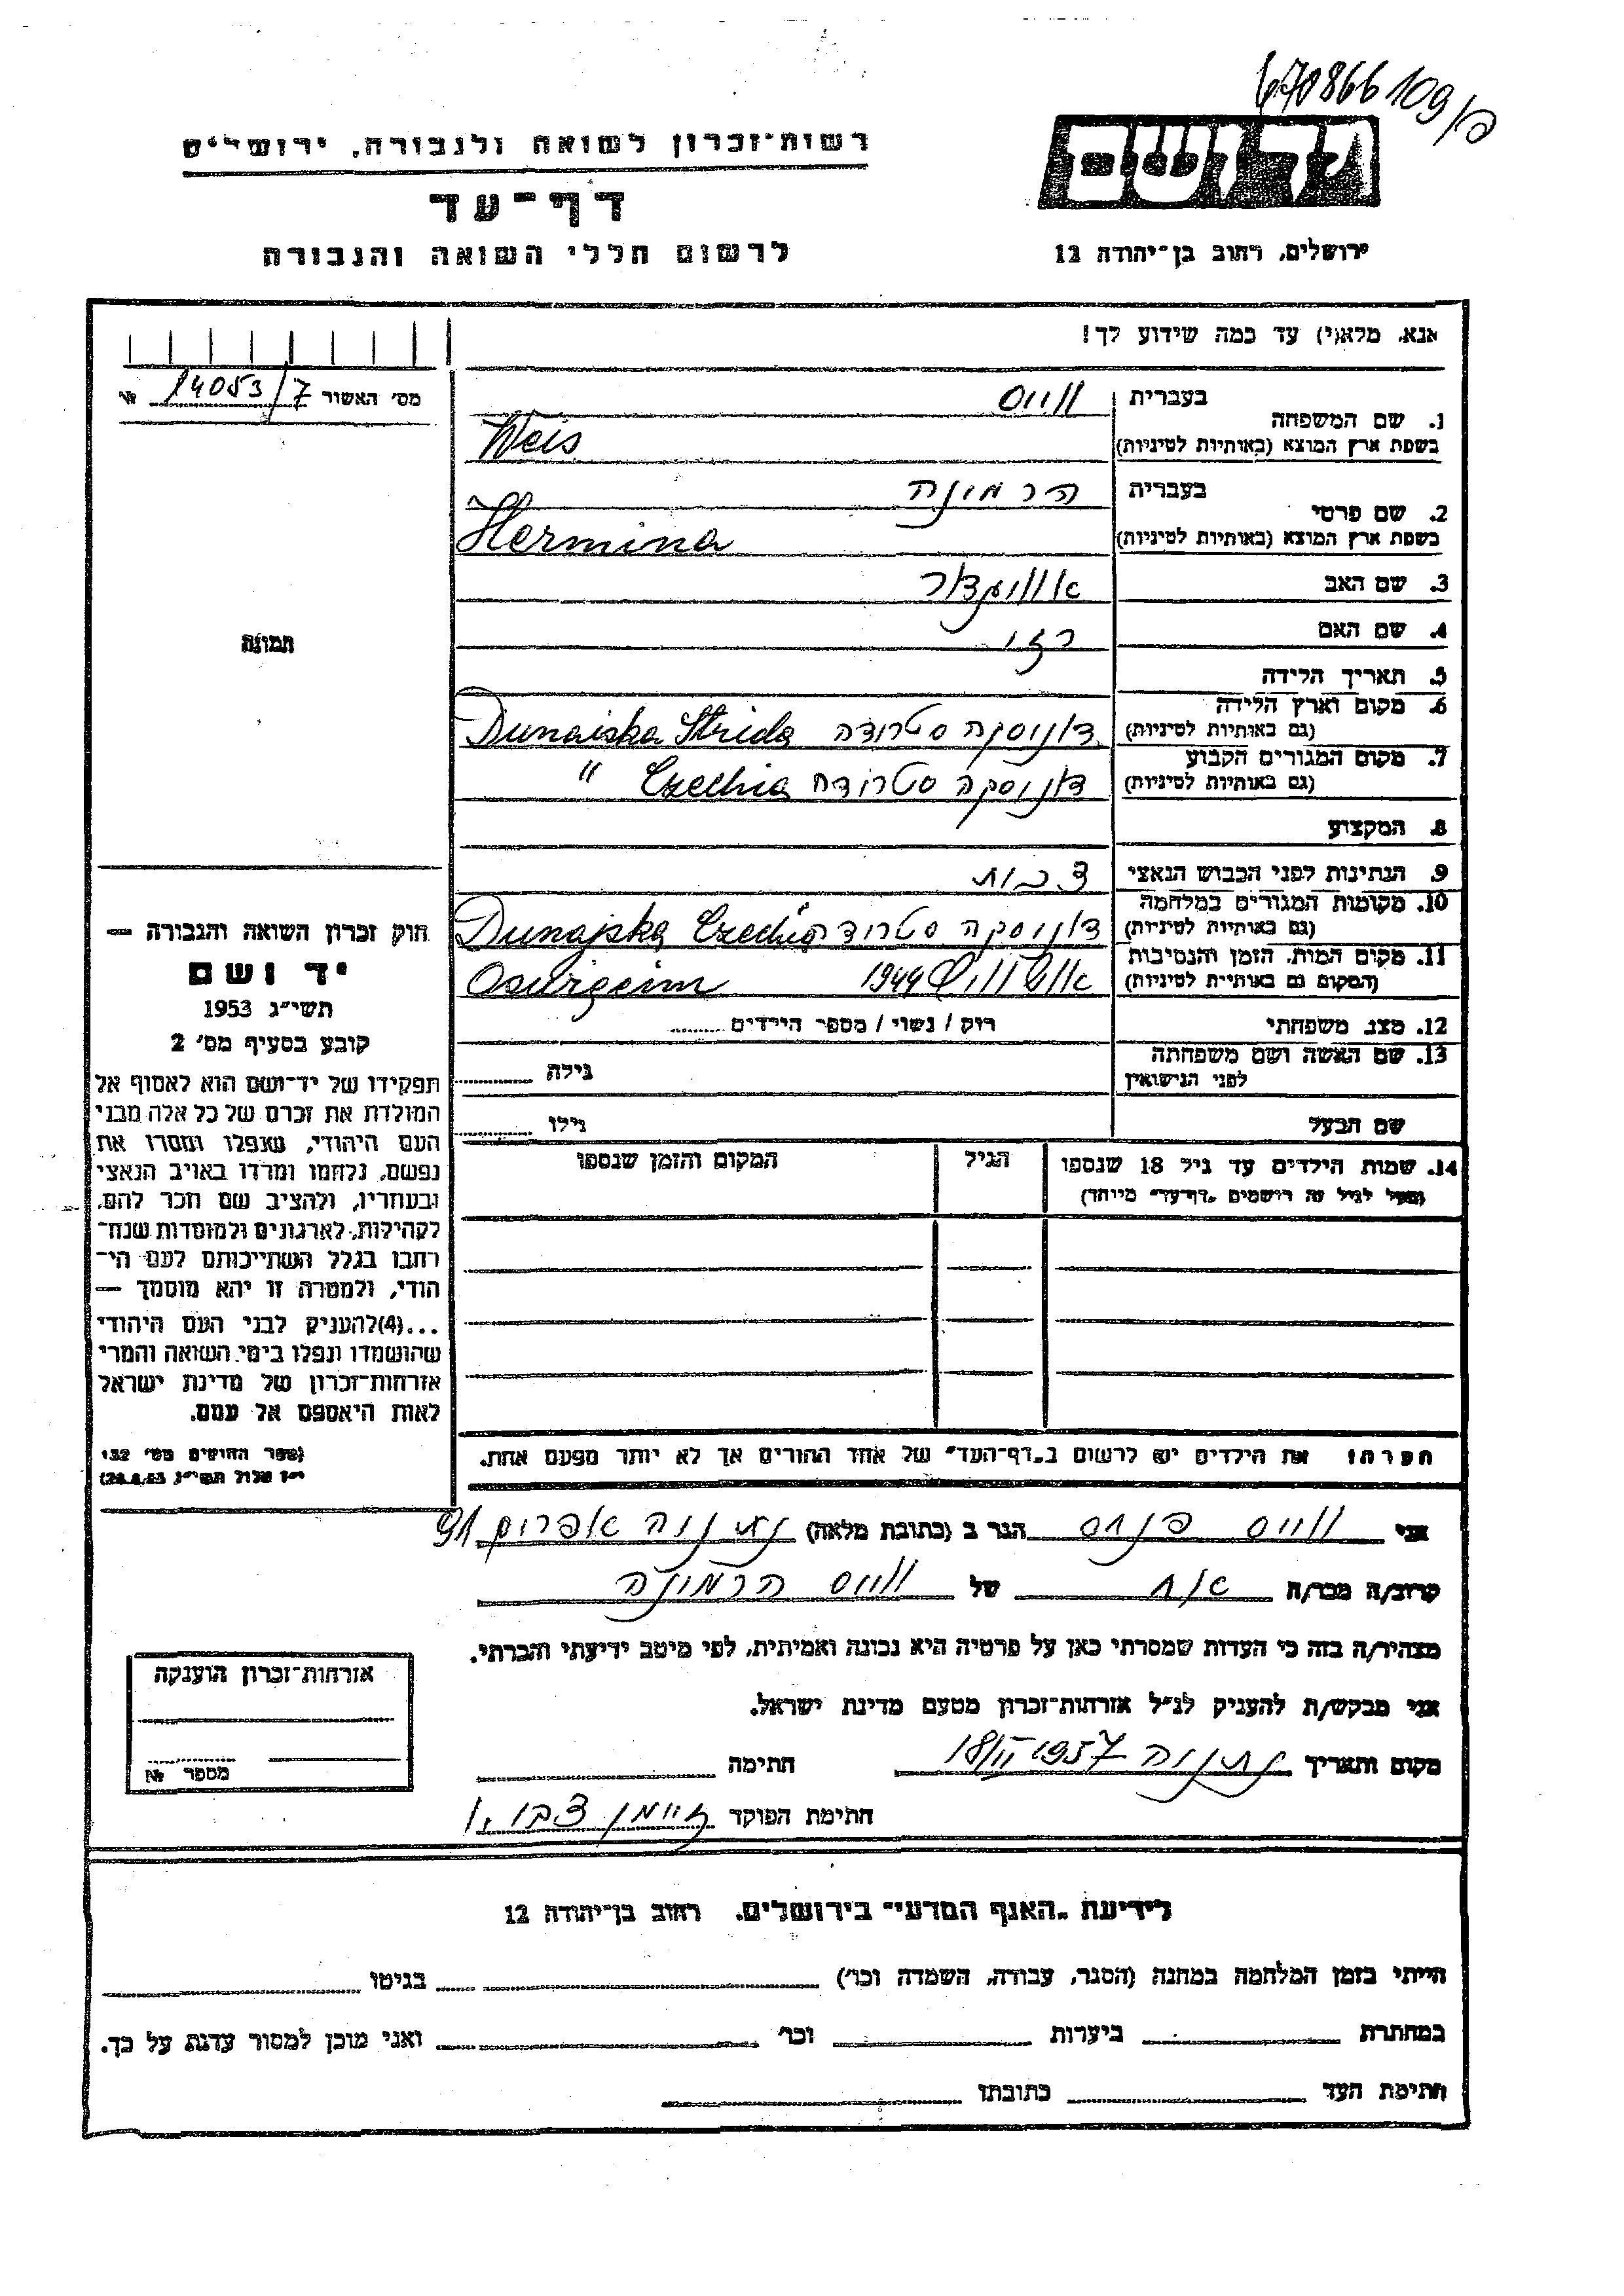 670866 109/פ
רשות־זכרון לשואה ולגבורה, ירושלים
דף־עד
לרשום חללי השואה והגבורה
יד ושם
ירושלים, רחוב בן־יהודה 12
אנא, מלא(י) עד כמה שידוע לך!
מס׳ האשור 14053/7 №
1. שם המשפחה
בעברית ווייס
בשפת ארץ המוצא (באותיות לטיניות) Weis
2. שם פרטי
בעברית הרמינה
בשפת ארץ המוצא (באותיות לטיניות) Hermina
3. שם האב
4. שם האם רזי
5. תאריך הלידה
6. מקום וארץ הלידה דונוסקה סטרודה Dunaiska Strida
(גם באותיות לטיניות)
7. מקום המגורים הקבוע דונוסקה סטרודה Czechia "
(גם באותיות לטיניות)
8. המקצוע
9. הנתינות לפני הכבוש הנאצי
10. מקומות המגורים במלחמה דונוסקה סטרודה Dunajska Czechia
(גם באותיות לטיניות)
11. מקום המות, הזמן והנסיבות 1944
(המקום גם באותיות לטיניות)
12. מצב משפחתי רוק / נשוי / מספר הילדים
13. שם האשה ושם משפחתה גילה
לפני הנישואין
שם הבעל גילו
14. שמות הילדים עד גיל 18 שנספו הגיל המקום והזמן שנספו
(מעל לגיל זה רושמים „דף־עד״ מיוחד)
תמונה
חוק זכרון השואה והגבורה —
יד ושם
תשי״ג 1953
קובע בסעיף מס׳ 2
תפקידו של יד־ושם הוא לאסוף אל
המולדת את זכרם של כל אלה מבני
העם היהודי, שנפלו ומסרו את
נפשם, נלחמו ומרדו באויב הנאצי
ובעוזריו, ולהציב שם וזכר להם,
לקהילות, לארגונים ולמוסדות שנח־
רבו בגלל השתייכותם לעם הי־
הודי, ולמטרה זו יהא מוסמך —
...(4) להעניק לבני העם היהודי
שהושמדו ונפלו בימי השואה והמרי
אזרחות־זכרון של מדינת ישראל
לאות היאספם אל עמם.
(ספר החוקים מס׳ 132
י״ז אלול תשי״ג 28.8.53)
הערה: את הילדים יש לרשום ב„דף־העד״ של אחד ההורים אך לא יותר מפעם אחת.
אני ווייס פנחס הגר ב (כתובת מלאה) נתניה אפרים 91
קרוב/ה מכר/ה אח של ווייס הרמינה
מצהיר/ה בזה כי העדות שמסרתי כאן על פרטיה היא נכונה ואמיתית, לפי מיטב ידיעתי והכרתי.
אני מבקש/ת להעניק לנ״ל אזרחות־זכרון מטעם מדינת ישראל.
מקום ותאריך נתניה 18/II 1957 חתימה
חתימת הפוקד
אזרחות־זכרון הוענקה
מספר №
לידיעת „האגף המדעי״ בירושלים, רחוב בן־יהודה 12
הייתי בזמן המלחמה במחנה (הסגר, עבודה, השמדה וכו׳) בגיטו
במחתרת ביערות וכו׳ ואני מוכן למסור עדות על כך.
חתימת העד כתובתו